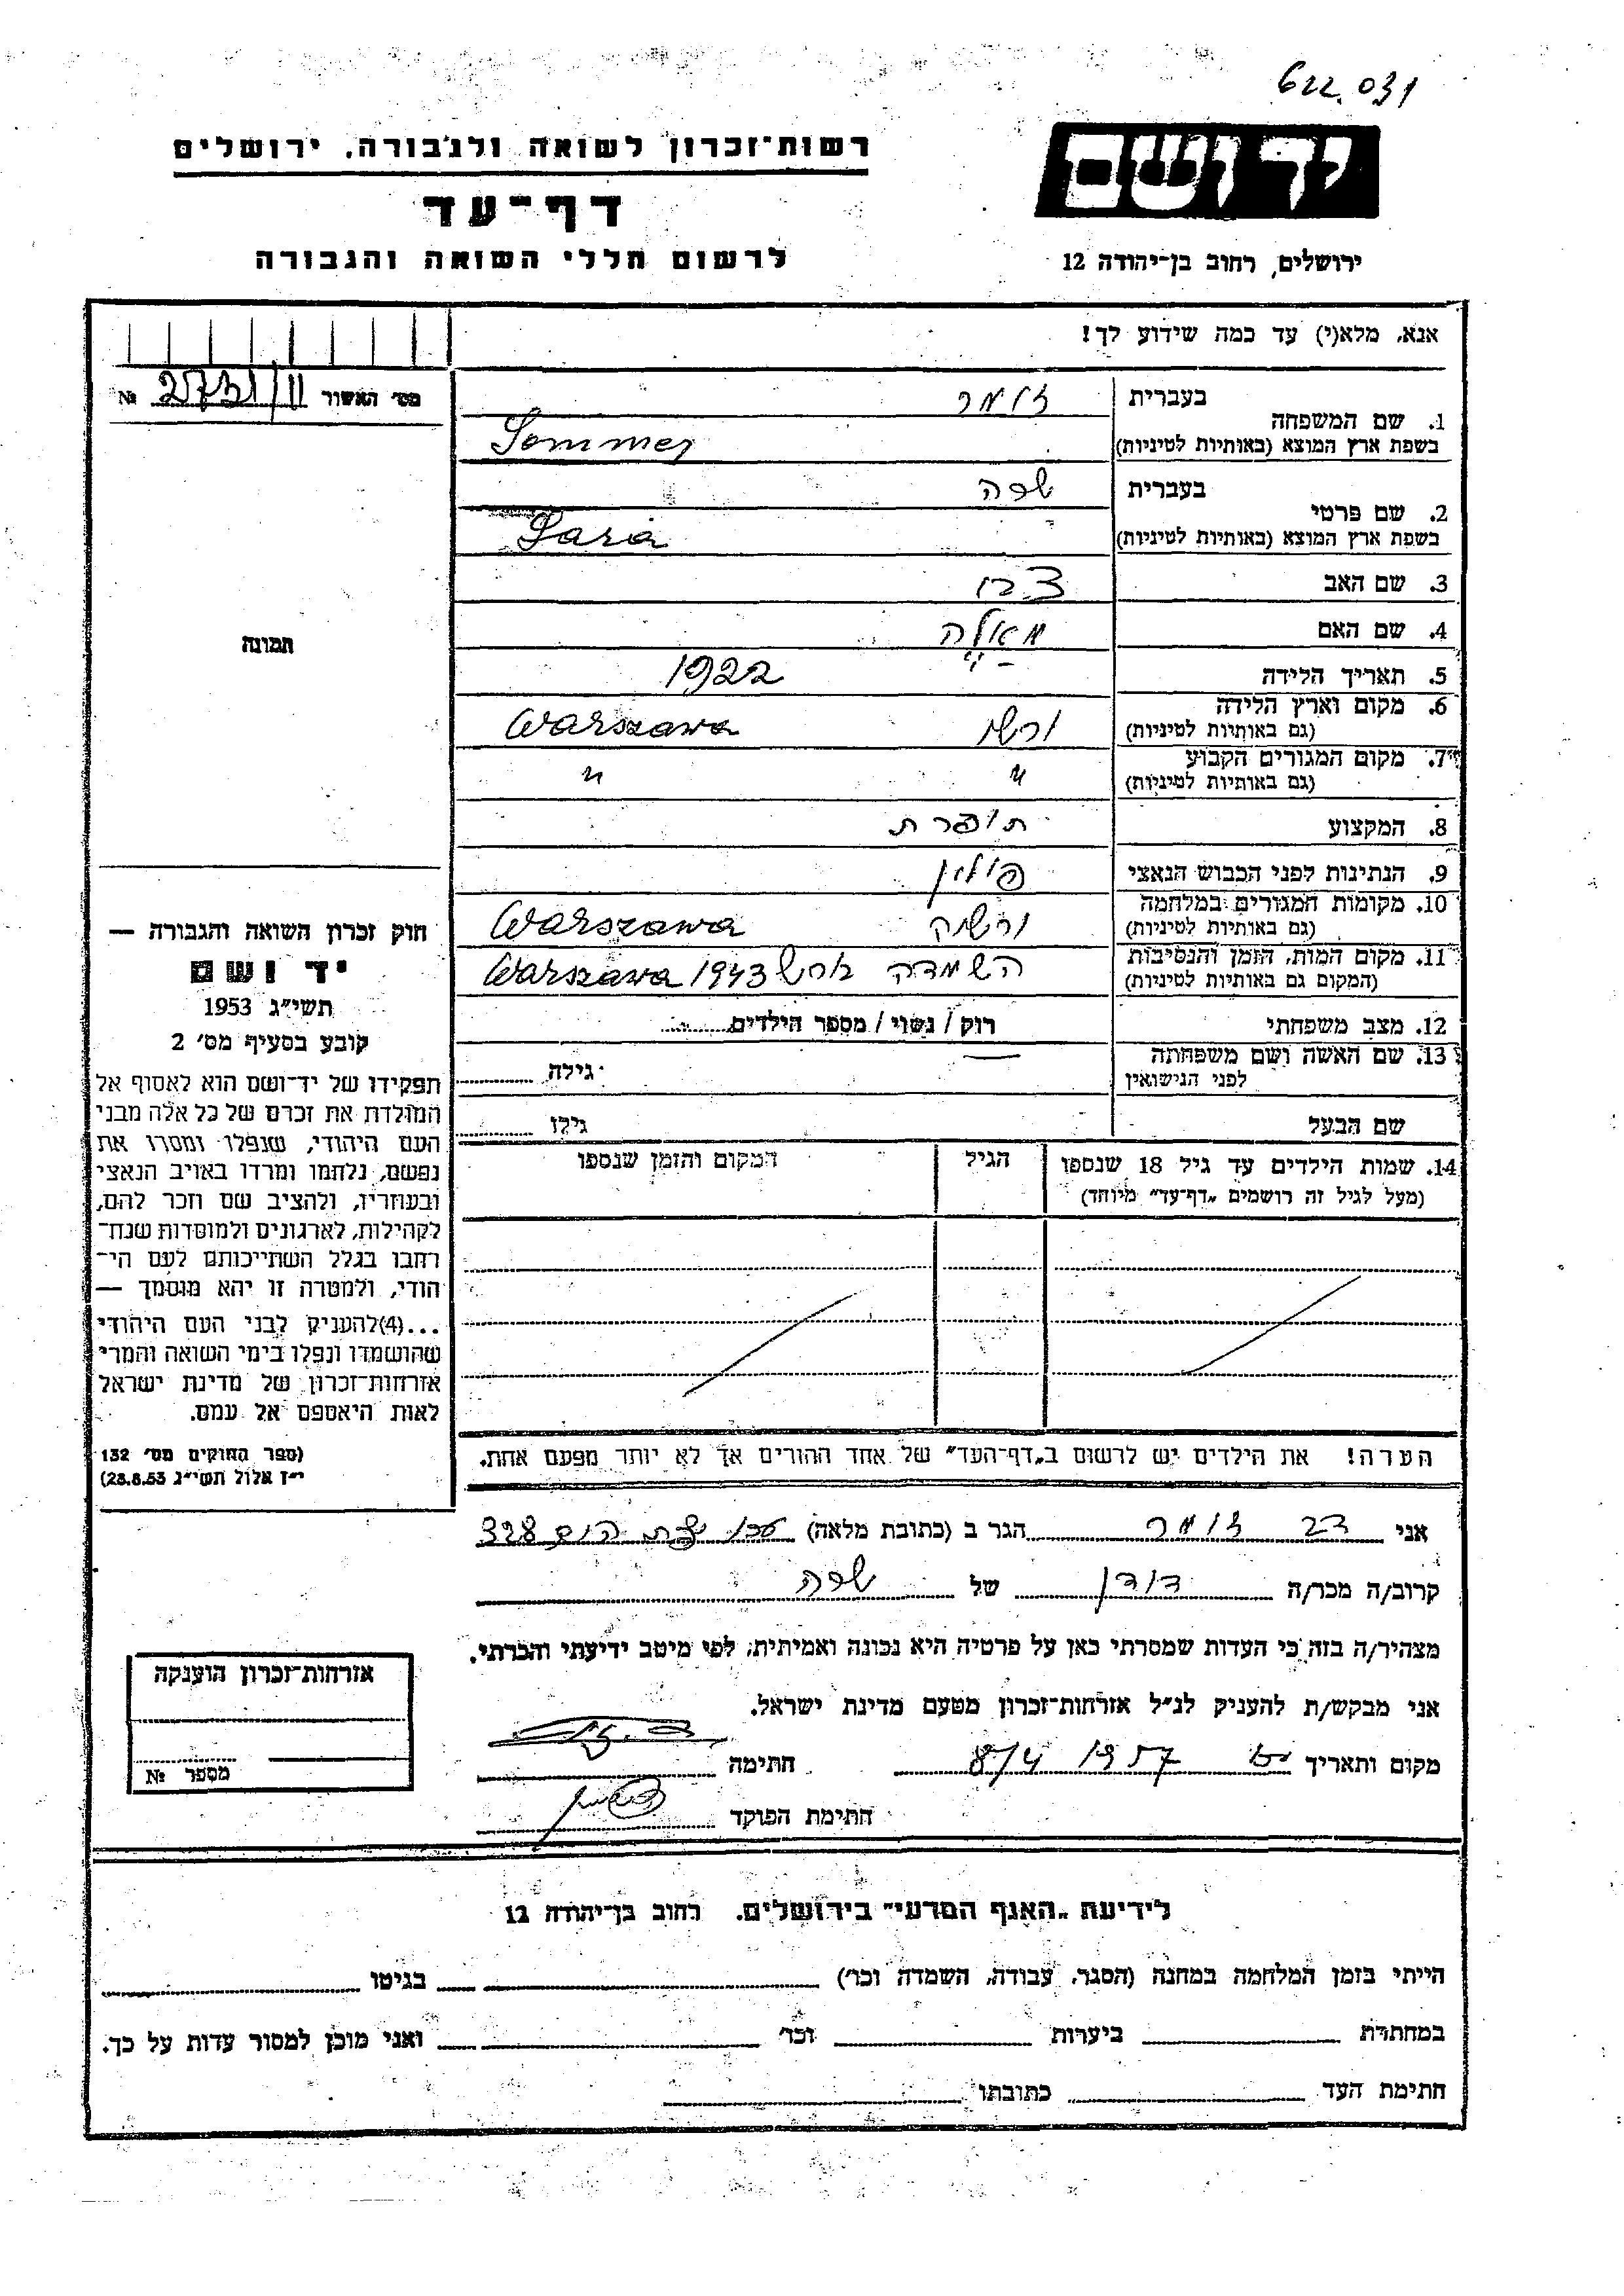 622.031
רשות־זכרון לשואה ולגבורה, ירושלים
יד ושם
דף־עד
לרשום חללי השואה והגבורה
ירושלים, רחוב בן־יהודה 12
אנא, מלא(י) עד כמה שידוע לך!
מס׳ האשור 2731/11 №
1. שם המשפחה
בעברית
זומר
בשפת ארץ המוצא (באותיות לטיניות)
Sommer
2. שם פרטי
בעברית
שרה
בשפת ארץ המוצא (באותיות לטיניות)
Sara
3. שם האב
4. שם האם
5. תאריך הלידה 1922
6. מקום וארץ הלידה
(גם באותיות לטיניות)
ורשו Warszawa
7. מקום המגורים הקבוע
(גם באותיות לטיניות)
" "
8. המקצוע תופרת
9. הנתינות לפני הכבוש הנאצי פולין
10. מקומות המגורים במלחמה
(גם באותיות לטיניות)
ורשה Warszawa
11. מקום המות, הזמן והנסיבות
(המקום גם באותיות לטיניות)
השמדה Warszawa 1943
12. מצב משפחתי רוק / נשוי / מספר הילדים
13. שם האשה ושם משפחתה
לפני הנישואין
גילה
שם הבעל גילו
14. שמות הילדים עד גיל 18 שנספו
(מעל לגיל זה רושמים „דף־עד״ מיוחד)
הגיל
המקום והזמן שנספו
הערה! את הילדים יש לרשום ב„דף־העד״ של אחד ההורים אך לא יותר מפעם אחת.
תמונה
חוק זכרון השואה והגבורה —
יד ושם
תשי״ג 1953
קובע בסעיף מס׳ 2
תפקידו של יד־ושם הוא לאסוף אל
המולדת את זכרם של כל אלה מבני
העם היהודי, שנפלו ומסרו את
נפשם, נלחמו ומרדו באויב הנאצי
ובעוזריו, ולהציב שם וזכר להם,
לקהילות, לארגונים ולמוסדות שנח־
רבו בגלל השתייכותם לעם הי־
הודי, ולמטרה זו יהא מוסמך —
...(4)להעניק לבני העם היהודי
שהושמדו ונפלו בימי השואה והמרי
אזרחות־זכרון של מדינת ישראל
לאות היאספם אל עמם.
(ספר החוקים מס׳ 132
י״ז אלול תשי״ג 28.8.53)
אני זומר הגר ב (כתובת מלאה) 328
קרוב/ה מכר/ה דודן של שרה
מצהיר/ה בזה כי העדות שמסרתי כאן על פרטיה היא נכונה ואמיתית, לפי מיטב ידיעתי והכרתי.
אני מבקש/ת להעניק לנ״ל אזרחות־זכרון מטעם מדינת ישראל.
מקום ותאריך 8/4 1957 חתימה
חתימת הפוקד
אזרחות־זכרון הוענקה
מספר №
לידיעת „האגף המדעי״ בירושלים. רחוב בן־יהודה 12
הייתי בזמן המלחמה במחנה (הסגר, עבודה, השמדה וכו׳) בגיטו
במחתרת ביערות וכו׳ ואני מוכן למסור עדות על כך.
חתימת העד כתובתו